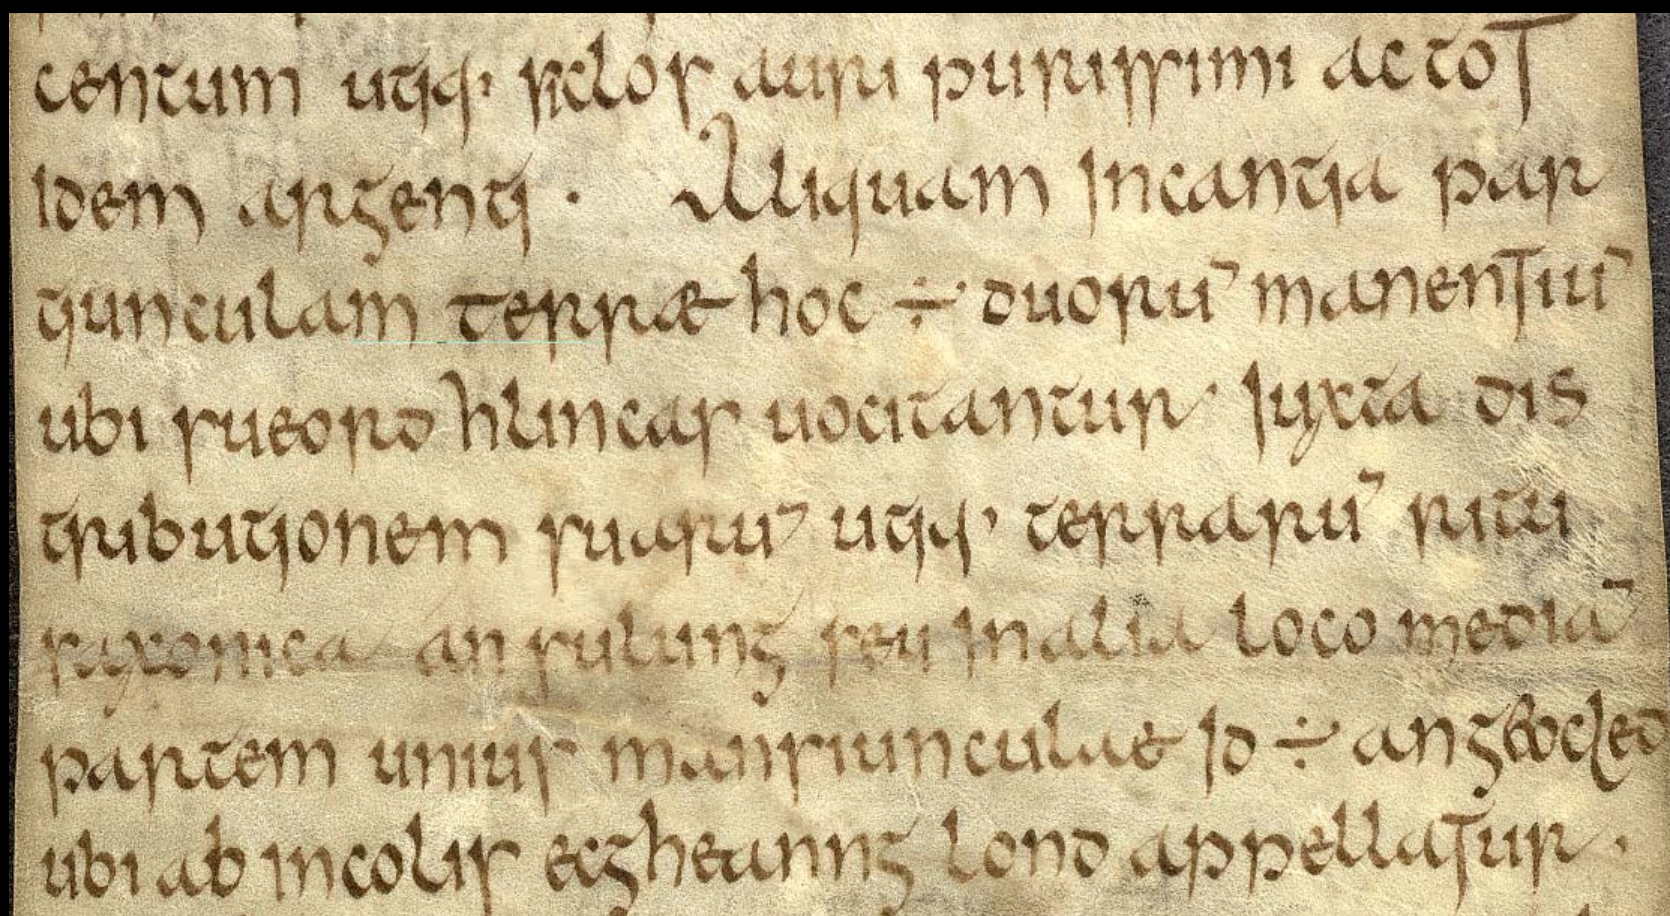 centum utiq; siclos auri purissimi ac tot
idem argenti · Aliquam in cantia par
tiunculam terrae hoc ÷ duorū manentiū
ubi sueord hlincas uocitantur iuxta dis
tributionem suarū utiq; terrarū ritu
saxonica an sulung seu in alia loco mediā
partem unius mansiunculae id ÷ an geocled
ubi ab incolis ecgheanng lond appellatur ·